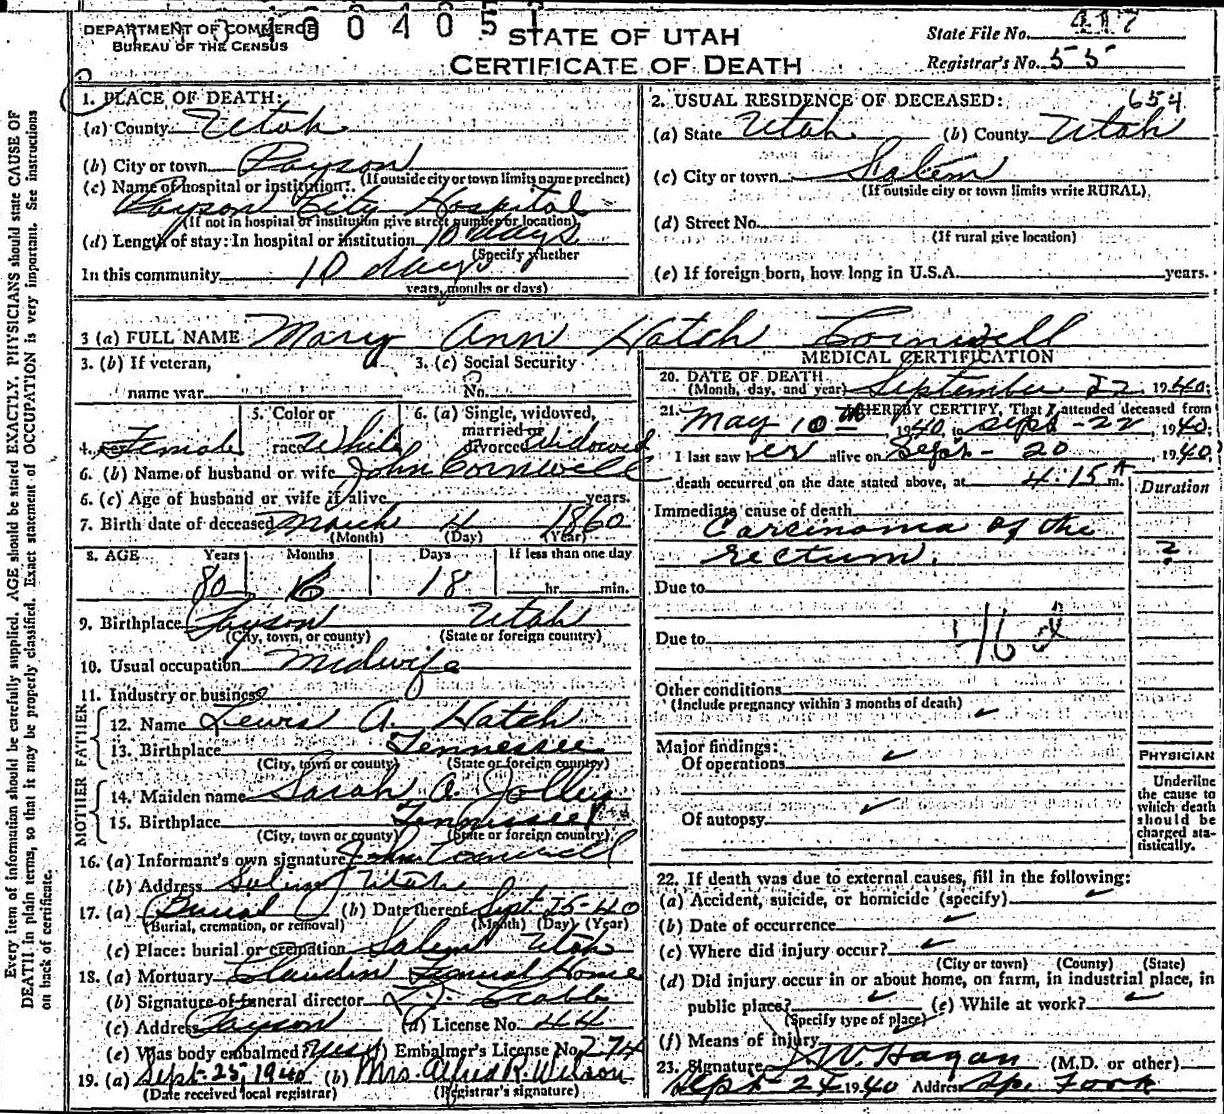 1004051
DEPARTMENT OF COMMERCE
BUREAU OF THE CENSUS
STATE OF UTAH
CERTIFICATE OF DEATH
State File No. 417
Registrar's No. 55
Every item of information should be carefully supplied. AGE should be stated EXACTLY. PHYSICIANS should state CAUSE OF
DEATH in plain terms, so that it may be properly classified. Exact statement of OCCUPATION is very important. See instructions
on back of certificate.
1. PLACE OF DEATH:
(a) County Utah
(b) City or town Payson
(If outside city or town limits name precinct)
(c) Name of hospital or institution:
Payson City Hospital
(If not in hospital or institution give street number or location)
(d) Length of stay: In hospital or institution 10 days
(Specify whether
In this community 10 days
years, months or days)
2. USUAL RESIDENCE OF DECEASED: 654
(a) State Utah (b) County Utah
(c) City or town Salem
(If outside city or town limits write RURAL)
(d) Street No.
(If rural give location)
(e) If foreign born, how long in U.S.A. years.
3 (a) FULL NAME Mary Ann Hatch Cornwell
3. (b) If veteran, 3. (c) Social Security
name war No.
4. Female 5. Color or race White 6. (a) Single, widowed, married or divorced Widowed
6. (b) Name of husband or wife John Cornwell
6. (c) Age of husband or wife if alive years.
7. Birth date of deceased March 4 1860
(Month) (Day) (Year)
8. AGE Years Months Days If less than one day
80 6 18 hr. min.
9. Birthplace Payson Utah
(City, town, or county) (State or foreign country)
10. Usual occupation Midwife
11. Industry or business
FATHER
12. Name Lewis A. Hatch
13. Birthplace Tennessee
(City, town or county) (State or foreign country)
MOTHER
14. Maiden name Sarah A. Jolley
15. Birthplace Tennessee
(City, town or county) (State or foreign country)
16. (a) Informant's own signature John Cornwell
(b) Address Salem Utah
17. (a) Burial (b) Date thereof Sept 25-40
(Burial, cremation, or removal) (Month) (Day) (Year)
(c) Place: burial or cremation Salem Utah
18. (a) Mortuary Claudin Funeral Home
(b) Signature of funeral director
(c) Address Payson (d) License No. 44
(e) Was body embalmed? Yes (f) Embalmer's License No. 274
19. (a) Sept. 25, 1940 (b) Mrs. Alfred R. Wilson
(Date received local registrar) (Registrar's signature)
MEDICAL CERTIFICATION
20. DATE OF DEATH
(Month, day, and year) September 22 1940
21. I HEREBY CERTIFY, That I attended deceased from
May 10th 1940, to Sept - 22, 1940;
I last saw her alive on Sept - 20, 1940,
death occurred on the date stated above, at 4:15 A m.
Duration
Immediate cause of death
Carcinoma of the
rectum. ?
Due to
Due to 46 d
Other conditions
(Include pregnancy within 3 months of death)
Major findings:
Of operations
Of autopsy
PHYSICIAN
Underline
the cause to
which death
should be
charged sta-
tistically.
22. If death was due to external causes, fill in the following:
(a) Accident, suicide, or homicide (specify)
(b) Date of occurrence
(c) Where did injury occur?
(City or town) (County) (State)
(d) Did injury occur in or about home, on farm, in industrial place, in
public place? (e) While at work?
(Specify type of place)
(f) Means of injury
23. Signature J W Hagan (M.D. or other)
Sept - 24 1940 Address Sp. Fork